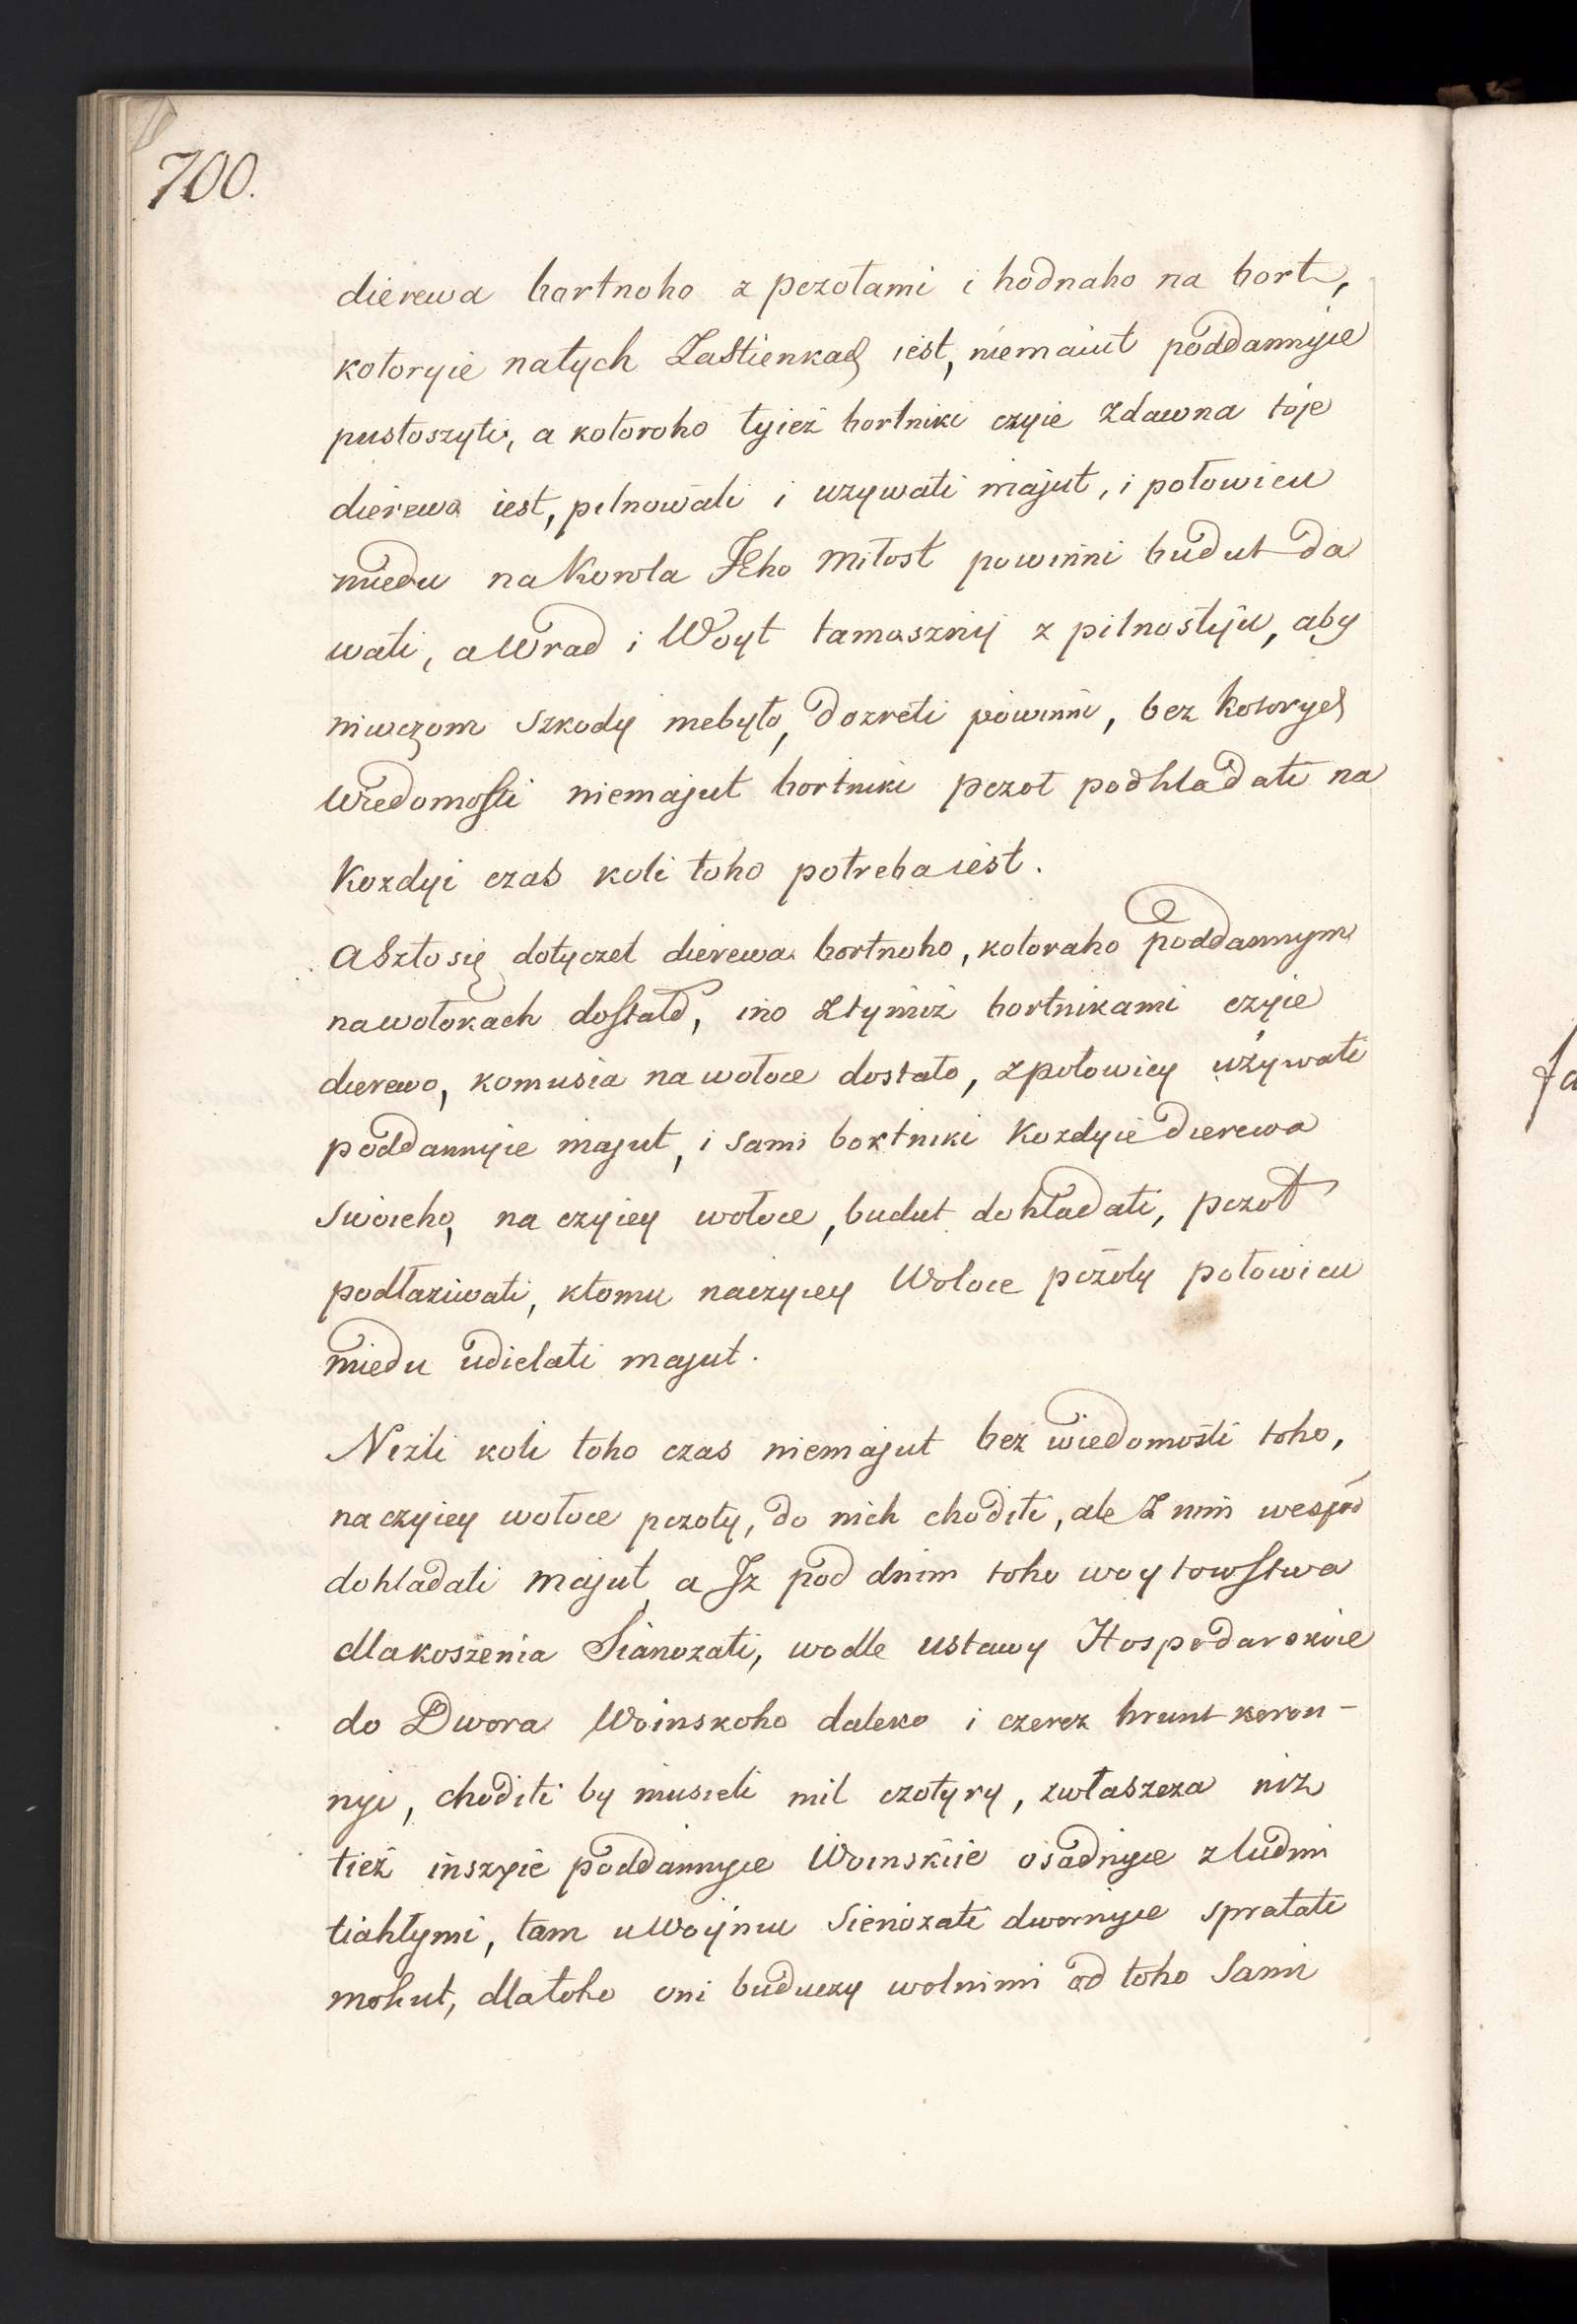 700.
dierewa bortnoho z pczołami i hodnaho na bort,
kotoryie natych Zastienkach iest, niemaiut poddannyie
pustoszyti, a kotoroho tyież bortniki czyie zdawna toje
dierewo iest, pilnowali i uzywati majut, i połowicu
miedu na Korola Jeho Miłost powinni budut da
wati, a Wrad i Woyt tamaszniy z pilnostyiu, aby
niwczom szkody niebyło, dozreti powinni, bez kotorych
wiedomosti niemajut bortniki pczoł podhladati na
Kozdyi czas koli toho potreba iest.
A szto się dotyczet dierewa bortnoho, kotoraho poddannym
nawołokach dostało, ino ztymiż bortnikami czyie
dierewo, komusia na wołoce dostało, zpołowicy używati
poddannyie majut, i sami bortniki Kozdyie dierewa
swoieho, na czyiey wołoce, budut dohladati, pczoł
podłaziwati, ktomu naczyiey Wołoce pczoły połowicu
miedu udielati majut.
Niżli koli toho czas niemajut bez wiedomosti toho,
na czyiey wołoce pczoły, do nich choditi, ale z nim wespoł
dohladati majut, a Iz pod dnim toho woytowstwa
dla koszenia Sianozati, wodle ustawy Hospodarskoie
do Dwora Woinskoho daleko i czerez hrunt koron-
nyi, choditi by musieli mil czotyry, zwłaszcza niż
tież inszyie poddannyie Woinskiie osadnyie z ludmi
tiahłymi, tam u Woynu Sienożati dwornyie spratati
mohut, dlatoho oni buduczy wolnimi od toho Sami